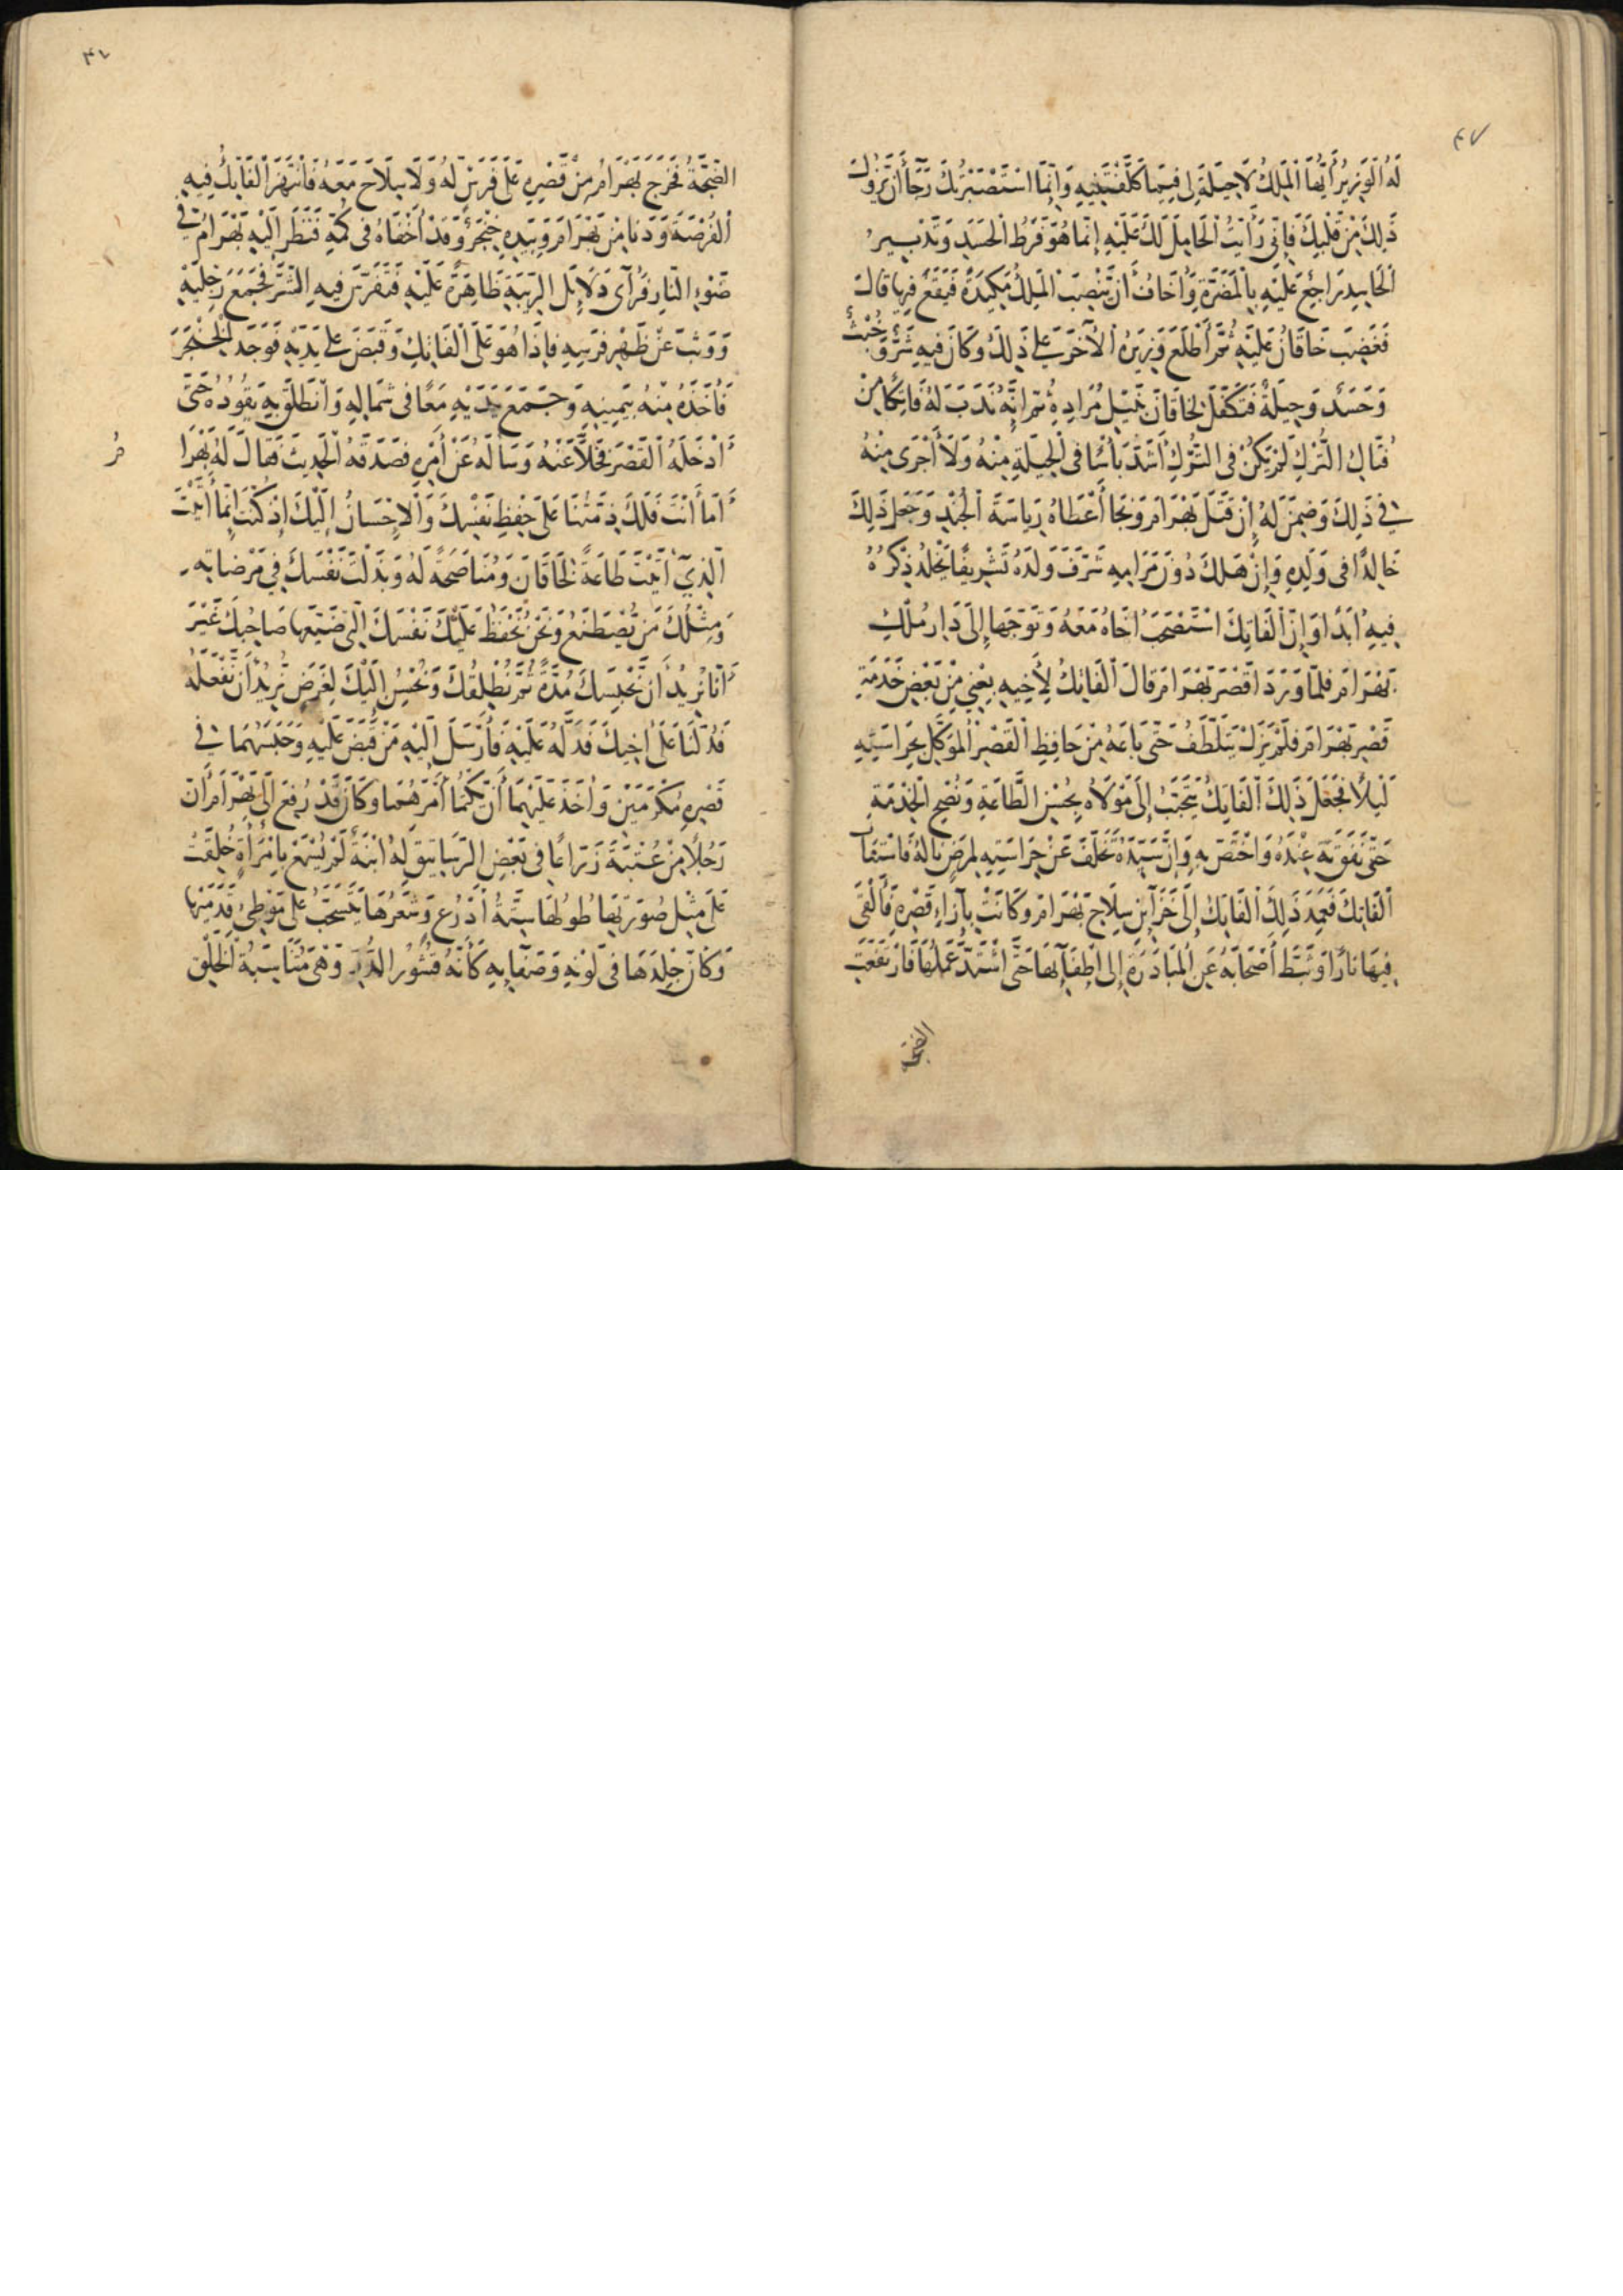 ٤٧
لَهُ الْوَزِيرُ أَيُّهَا الْمَلِكُ لَا حِيلَةَ لِي فِيمَا كَلَّفْتَنِيهِ وَإِنَّمَا اسْتَصْبَرْتُكَ رَجَآءَ أَنْ يَزُولَ
ذَلِكَ مِنْ قَلْبِكَ فَإِنِّي رَأَيْتُ الْحَامِلَ لَكَ عَلَيْهِ إِنَّمَا هُوَ فَرْطُ الْحَسَدِ وَتَدْبِيرُ
الْحَاسِدِ رَاجِعٌ عَلَيْهِ بِالْمَضَرَّةِ وَأَخَافُ أَنْ يَنْصِبَ الْمَلِكُ مَكِيدَةً فَيَقَعَ فِيهَا قَالَ
فَغَضِبَ خَاقَانُ عَلَيْهِ ثُمَّ أَطْلَعَ وَزِيرَهُ الْآخَرَ عَلَى ذَلِكَ وَكَانَ فِيهِ شَرٌّ وَخُبْثٌ
وَحَسَدٌ وَحِيلَةٌ فَتَكَفَّلَ لِخَاقَانَ بِنَيْلِ مُرَادِهِ ثُمَّ إِنَّهُ نَدَبَ لَهُ فَاتِكًا مِنْ
فُتَّاكِ التُّرْكِ لَمْ يَكُنْ فِي التُّرْكِ أَشَدَّ بَأْسًا فِي الْحِيلَةِ مِنْهُ وَلَا أَجْرَى مِنْهُ
فِي ذَلِكَ وَضَمِنَ لَهُ إِنْ قَتَلَ بَهْرَامَ وَنَجَا أَعْطَاهُ رِيَاسَةَ الْجُنْدِ وَجَعَلَ ذَلِكَ
خَالِدًا فِي وَلَدِهِ وَإِنْ هَلَكَ دُونَ مَرَامِهِ شَرَّفَ وَلَدَهُ تَشْرِيفًا يَخْلُدُ ذِكْرُهُ
فِيهِ أَبَدًا وَإِنَّ الْفَاتِكَ اسْتَصْحَبَ أَخَاهُ مَعَهُ وَتَوَجَّهَا إِلَى دَارِ مُلْكِ
بَهْرَامَ فَلَمَّا وَرَدَا قَصْرَ بَهْرَامَ قَالَ الْفَاتِكُ لِأَخِيهِ بِعْنِي مِنْ بَعْضِ خَدَمَةِ
قَصْرِ بَهْرَامَ فَلَمْ يَزَلْ يَتَلَطَّفُ حَتَّى بَاعَهُ مِنْ حَافِظِ الْقَصْرِ الْمُوَكَّلِ بِحِرَاسَتِهِ
لَيْلًا فَجَعَلَ ذَلِكَ الْفَاتِكُ يَتَحَبَّبُ إِلَى مَوْلَاهُ بِحُسْنِ الطَّاعَةِ وَنُصْحِ الْخِدْمَةِ
حَتَّى نَفَقَ عِنْدَهُ وَاخْتَصَّ بِهِ وَإِنَّ سَيِّدَهُ تَخَلَّفَ عَنْ حِرَاسَتِهِ لِمَرَضٍ نَالَهُ فَاسْتَنَابَ
الْفَاتِكَ فَعَمَدَ ذَلِكَ الْفَاتِكُ إِلَى خَزَآئِنِ سِلَاحِ بَهْرَامَ وَكَانَتْ بِإِزَاءِ قَصْرِهِ فَأَلْقَى
فِيهَا نَارًا وَثَبَّطَ أَصْحَابَهُ عَنِ الْمُبَادَرَةِ إِلَى إِطْفَآئِهَا حَتَّى اشْتَدَّ عَمَلُهَا فَارْتَفَعَتِ
الضجة
الضَّجَّةُ فَخَرَجَ بَهْرَامُ مِنْ قَصْرِهِ عَلَى فَرَسٍ لَهُ وَلَا سِلَاحَ مَعَهُ فَانْتَهَزَ الْفَاتِكُ فِيهِ
الْفُرْصَةَ وَدَنَا مِنْ بَهْرَامَ وَبِيَدِهِ خِنْجَرٌ وَقَدْ أَخْفَاهُ فِي كُمِّهِ فَنَظَرَ إِلَيْهِ بَهْرَامُ فِي
ضَوْءِ النَّارِ فَرَأَى دَلَائِلَ الرِّيبَةِ ظَاهِرَةً عَلَيْهِ فَتَفَرَّسَ فِيهِ الشَّرَّ فَجَمَعَ رِجْلَيْهِ
وَوَثَبَ عَنْ ظَهْرِ فَرَسِهِ فَإِذَا هُوَ عَلَى الْفَاتِكِ وَقَبَضَ عَلَى يَدَيْهِ فَوَجَدَ الْخِنْجَرَ
فَأَخَذَهُ مِنْهُ بِيَمِينِهِ وَجَمَعَ يَدَيْهِ مَعًا فِي شِمَالِهِ وَانْطَلَقَ بِهِ يَقُودُهُ حَتَّى
أَدْخَلَهُ الْقَصْرَ فَخَلَا عَنْهُ وَسَأَلَهُ عَنْ أَمْرِهِ فَصَدَقَهُ الْحَدِيثَ فَقَالَ لَهُ بَهْرَا
مُ
أَمَا أَنْتَ فَلَكَ ذِمَّتُنَا عَلَى حِفْظِ نَفْسِكَ وَالْإِحْسَانُ إِلَيْكَ إِذْ كُنْتَ إِنَّمَا أَتَيْتَ
الَّذِي أَتَيْتَ طَاعَةً لِخَاقَانَ وَمُنَاصَحَةً لَهُ وَبَذَلْتَ نَفْسَكَ فِي مَرْضَاتِهِ
وَمِثْلُكَ مَنْ يُصْطَنَعُ وَنَحْنُ نَحْفَظُ عَلَيْكَ نَفْسَكَ الَّتِي ضَيَّعَهَا صَاحِبُكَ غَيْرَ
أَنَّا نُرِيدُ أَنْ نَحْبِسَكَ مُدَّةً ثُمَّ نُطْلِقُكَ وَنُحْسِنُ إِلَيْكَ لِغَرَضٍ نُرِيدُ أَنْ نَفْعَلَهُ
فَدُلَّنَا عَلَى أَخِيكَ فَدَلَّهُ عَلَيْهِ فَأَرْسَلَ إِلَيْهِ مَنْ قَبَضَ عَلَيْهِ وَحَبَسَهُمَا فِي
قَصْرِهِ مُكْرَمَيْنِ وَأَخَذَ عَلَيْهِمَا أَنْ يَكْتُمَا أَمْرَهُمَا وَكَانَ قَدْ رُفِعَ إِلَى بَهْرَامَ أَنَّ
رَجُلًا مِنْ زَرَّاعًا فِي بَعْضِ الرَّسَاتِيقِ لَهُ ابْنَةٌ لَمْ يُسْمَعْ بِامْرَأَةٍ خُلِقَتْ
عَلَى مِثْلِ صُورَتِهَا طُولُهَا سِتَّةُ أَذْرُعٍ وَشَعْرُهَا يَنْسَحِبُ عَلَى مَوْطِئِ قَدَمَيْهَا
وَكَأَنَّ جِلْدَهَا فِي لَوْنِهِ وَصَفَآئِهِ كَأَنَّهُ قُشُورُ الدُّرِّ وَهِيَ مُتَنَاسِبَةُ الْخَلْقِ